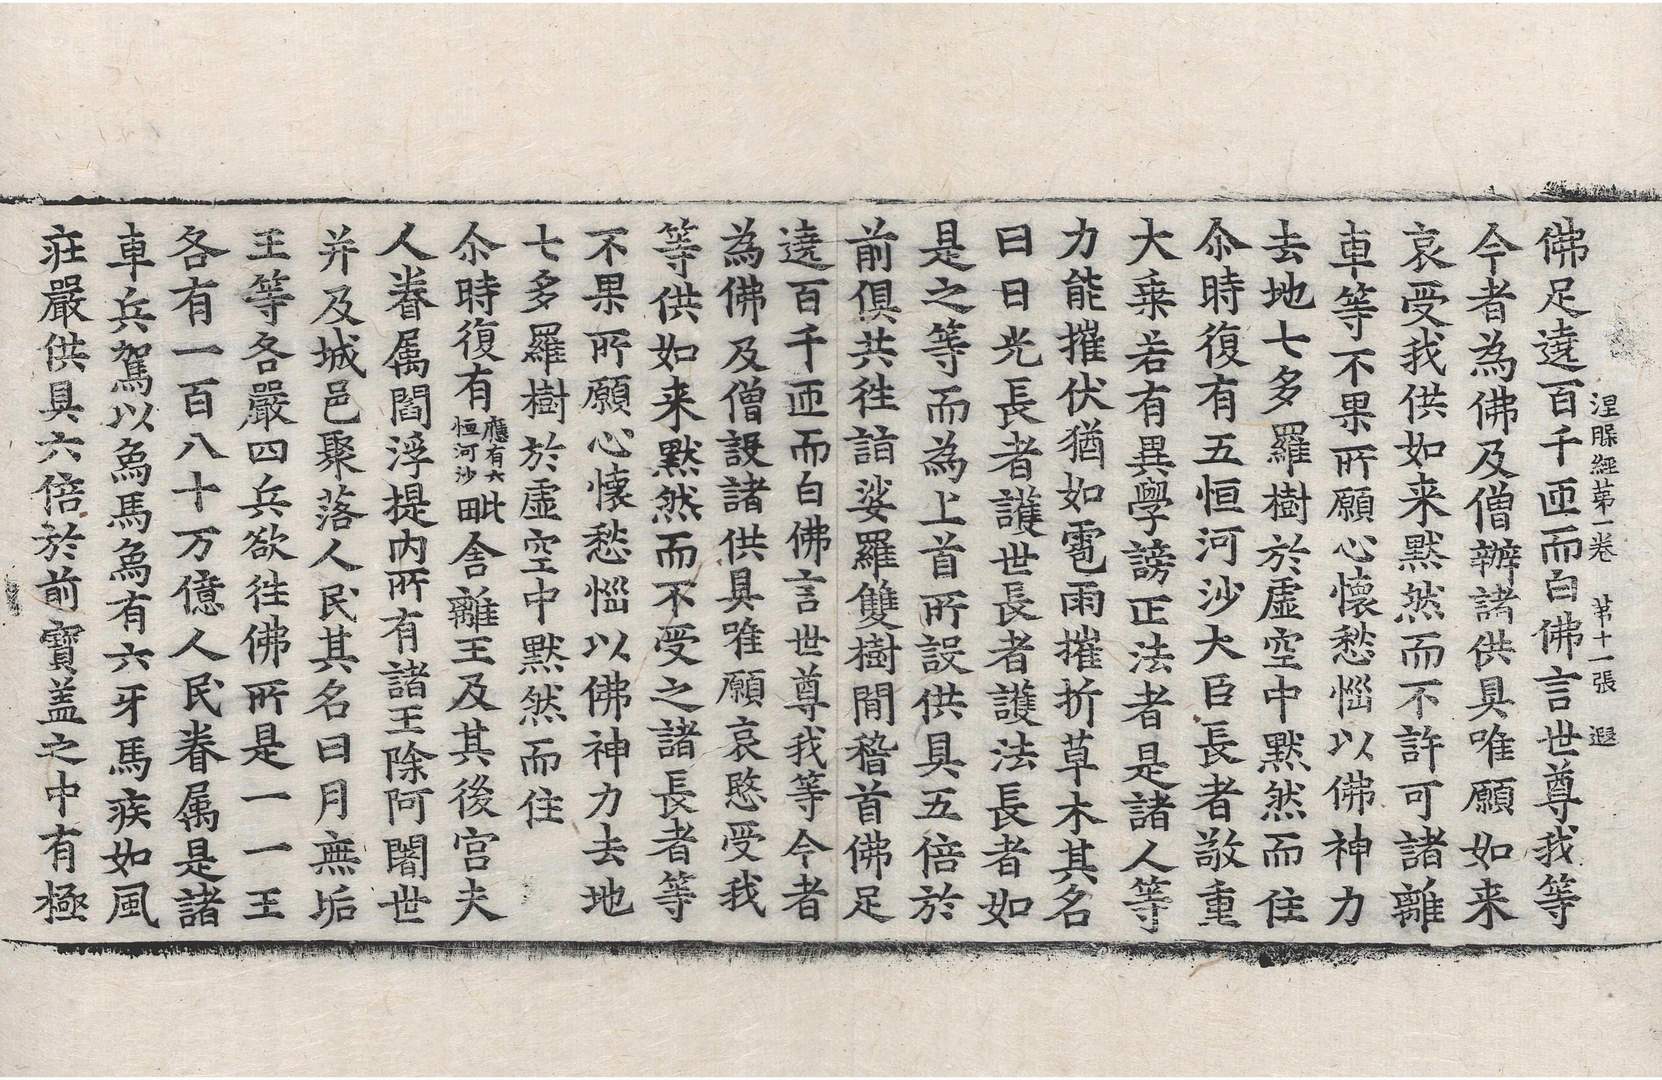 涅脲經苐一卷 苐十一張 遐
佛足遶百千匝而白佛言世尊我等
今者為佛及僧辦諸供具唯願如来
哀受我供如来默然而不許可諸離
車等不果所願心懷愁惱以佛神力
去地七多羅樹於虛空中默然而住
尒時復有五恒河沙大臣長者敬重
大乗若有異學謗正法者是諸人等
力能摧伏猶如雹雨摧折草木其名
曰日光長者護世長者護法長者如
是之等而為上首所設供具五倍於
前俱共往詣娑羅雙樹間稽首佛足
遶百千匝而白佛言世尊我等今者
為佛及僧設諸供具唯願哀愍受我
等供如来默然而不受之諸長者等
不果所願心懷愁惱以佛神力去地
七多羅樹於虛空中默然而住
尒時復有應有六恒河沙毗舍離王及其後宫夫
人眷属閻浮提内所有諸王除阿闍世
并及城邑聚落人民其名曰月無垢
王等各嚴四兵欲往佛所是一一王
各有一百八十万億人民眷属是諸
車兵駕以象馬象有六牙馬疾如風
荘嚴供具六倍於前寶盖之中有極